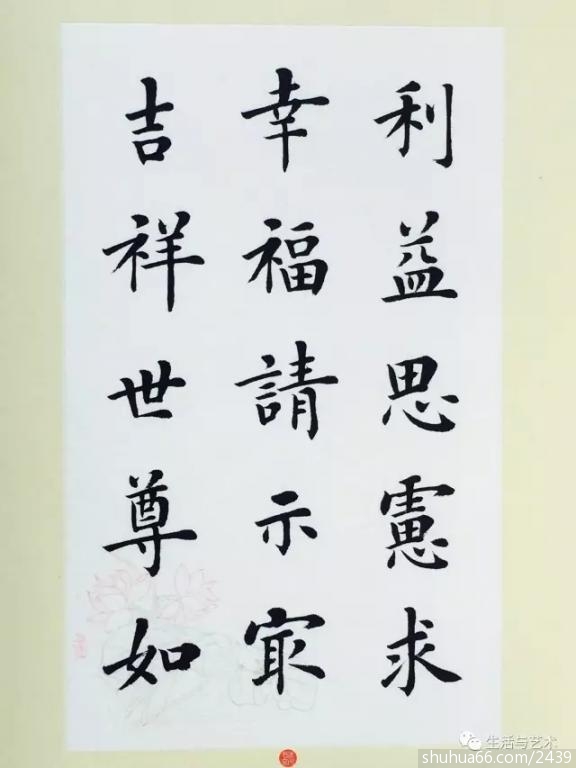 利益思慮求
幸福請示㝡
吉祥世尊如
生活与艺术
shuhua66.com/2439